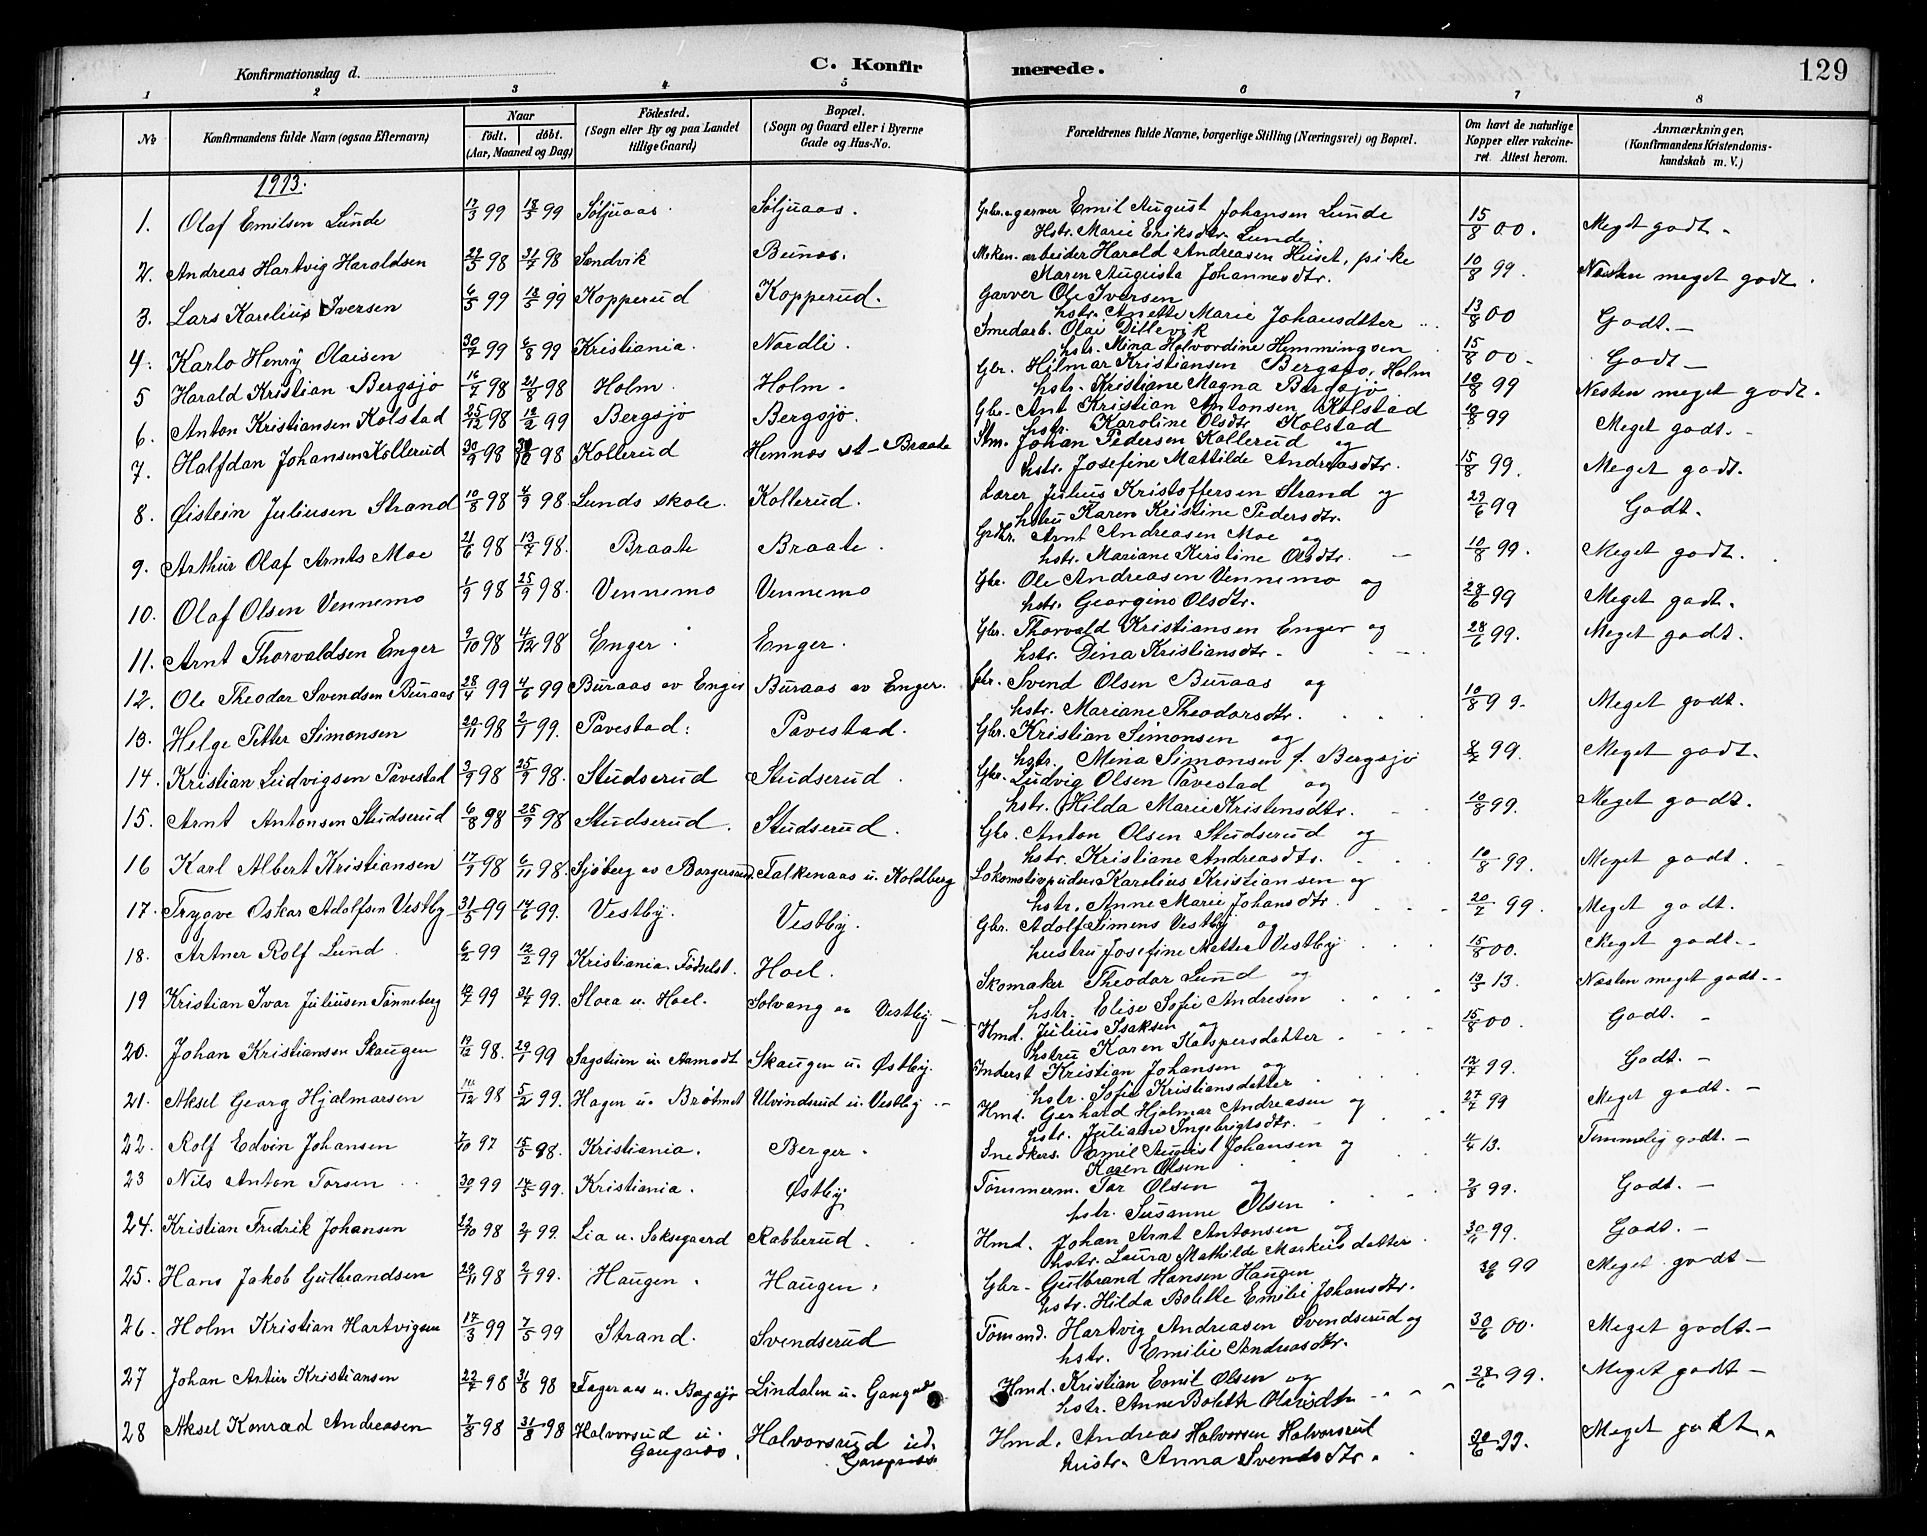 129
Konfirmationsdag d.
C. Konfirmerede.
1 2 3 4 5 6 7 8
No
Konfirmandens fulde Navn (ogsaa Efternavn)
Naar
födt. döbt.
(Aar, Maaned og Dag)
Födested.
(Sogn eller By og paa Landet
tillige Gaard)
Bopæl.
(Sogn og Gaard eller i Byerne
Gade og Hus-No.
Forældrenes fulde Navne, borgerlige Stilling (Næringsvei) og Bopæl.
Om havt de naturlige
Kopper eller vakcine-
ret. Attest herom.
Anmærkninger.
(Konfirmandens Kristendoms-
kundskab m. V.)
1913.
1. Olaf Emilsen Lunde 17/3 99 18/5 99 Söljuaas. Söljuaas. Gbr. garver Emil August Johansen Lunde 15/8 00. Meget godt.
Hstr. Marie Eriksdtr. Lunde.
2. Andreas Hartvig Haraldsen 22/5 98 31/7 98 Sandvik Bunæs. Meken. arbeider Harald Andreasen Huset, pike 10/8 99. Næsten meget godt.
Maren Augusta Johannesdtr.
3. Lars Karelius Iversen 6/5 99 18/5 99 Kopperud Kopperud. Garver Ole Iversen 13/8 00 Godt.
hstr. Anette Marie Johansdtter
4. Karlo Henry Olaisen 30/7 99 6/8 99 Kristiania. Nordli. Smedarb. Olai Dillevik 15/8 00 Godt
hstr. Mina Halvordine Hemmingsen
5 Harald Kristian Bergsjø 16/7 98 21/8 98 Holm. Holm. Gbr. Hilmar Kristiansen Bergsjø, Holm 10/8 99 Nesten meget godt.
hstr. Kristiane Magna Bergsjø
6. Anton Kristiansen Kolstad 25/12 98 12/2 99 Bergsjö Bergsjö. Gbr. Ant Kristian Antonsen Kolstad 10/8 99 Meget godt.
hstr. Karoline Olsdtr Kolstad
7. Halfdan Johansen Kollerud 30/9 98 98 Kollerud Hemnæs st - Braate Stm. Johan Pedersen Kollerud og 15/8 99. Meget godt.
hstr. Josefine Mattilde Andreasdtr.
8. Øistein Juliusen Strand 10/8 98 4/9 98 Lunds skole. Kollerud. Lærer Julius Kristoffersen Strand og 29/6 99 Godt.
hstru Karen Kristine Pedersdtr.
9. Arthur Olaf Arnts Moe 21/6 98 13/7 98. Braate Braate. Grdbr. Arnt Andreasen Moe og 10/8 99. Meget godt.
hstr. Mariane Kirstine Olsdtr.
10. Olaf Olsen Vennemo 1/9 98 25/9 98. Vennemo Vennemo Gbr. Ole Andreasen Vennemo og 28/6 99 Meget godt.
hstr. Georgine Olsdtr.
11. Arnt Thorvaldsen Enger 2/10 98 4/12 98 Enger. Enger. Gbr. Thorvald Kristiansen Enger og 28/6 99. Meget godt.
hstr. Dina Kristiansdtr.
12. Ole Theodor Svendsen Buraas 28/4 99 4/6 99 Buraas av Enger Buraas av Enger. Gbr. Svend Olsen Buraas og 10/8 99. Meget godt.
hstr. Mariane Theodorsdtr.
13. Helge Petter Simonsen 20/11 98 2/1 99. Pavestad. Pavestad. Gbr. Kristian Simonsen og 8/2 99. Meget godt.
hstr. Mina Simonsen f. Bergsjø
14. Kristian Ludvigsen Pavestad 3/9 98 25/9 98. Studserud Studserud. Gbr. Ludvig Olsen Pavestad og 10/8 99. Meget godt.
hstr. Hilda Marie Kristensdtr.
15. Arnt Antonsen Studserud 6/8 98 25/9 98 Studserud. Studserud. Gbr. Anton Olsen Studserud og 10/8 99. Meget godt.
hstr. Kristiane Andreasdtr.
16 Karl Albert Kristiansen 17/9 98 6/11 98. Sjöberg av Borgersrud. Falkenaas u. Holdberg Lokomotivpudser Karolius Kristiansen og 20/7 99. Meget godt.
hstr. Anne Marie Johansdtr.
17. Trygve Oskar Adolfsen Vestby 31/5 99 14/6 99. Vestby. Vestby. Gbr. Adolf Simens Vestby og 15/8 00. Meget godt.
hustru Josefine Mette Vestby
18. Artner Rolf Lund 6/2 99 12/2 99 Kristiania. Födselst. Hoel. Skomaker Theodor Lund og 13/5 13. Næsten meget godt.
hstr. Elise Sofie Andresen
19 Kristian Ivar Juliusen Tønneberg 12/7 99 31/7 99. Slora u. Hoel. Solvang av Vestby Hmd. Julius Isaksen og 15/8 00. Godt.
hstru Karen Kaspersdatter
20. Johan Kristiansen Skaugen 19/12 98. 29/1 99 Sagstuen u. Aamodt Skaugen u. Østby. Inderst Kristian Johansen og 12/7 99. Godt.
hstr. Sofie Kristiansdatter
21. Aksel Georg Hjalmarsen 14/12 98 5/2 99. Hagen u. Brötmet Ulvinderud u. Vestby. Hmd. Gerhard Hjalmar Andreasen og 27/7 99 Meget godt.
hstr. Juliane Ingebrigtsdtr.
22. Rolf Edvin Johansen 7/10 97 15/5 98. Kristiania. Berger. Snedkers. Emil August Johansen og 4/4 13. Temmelig godt.
Karen Olsen
23 Nils Anton Torsen 30/1 99 14/5 99. Kristiania. Østby Tømmerm. Tor Olsen og 2/8 99. Godt.
hstr. Susanne Olsen
24. Kristian Fredrik Johansen 22/10 98 2/1 99. Lia u. Saksegaard Rabberud. Hmd. Johan Arnt Antonsen og 30/11 99. Godt.
hstr. Laura Mathilde Markusdatter
25. Hans Jakob Gulbrandsen 29/11 98 2/1 99. Haugen. Haugen. Gbr. Gulbrand Hansen Haugen 30/6 99 Meget godt
hstr. Hilda Bolette Emilie Johansdtr.
26. Holm Kristian Hartvigsen 17/3 99 7/5 99 Strand. Svendserud Tømmd. Hartvig Andreasen Svendserud og 30/6 00. Meget godt.
hstr. Emilie Andreasdtr.
27 Johan Artur Kristiansen 22/7 98 31/8 98 Fageraas u. Bergsjø Lindalen u. Hmd. Kristian Emil Olsen og 28/6 99. Meget godt
hstr. Anne Bolette Olavsdtr
28 Aksel Konrad Andreasen 7/8 98 31/8 98 Halvorsrud u. Halvorsrud ud. Hmd. Andreas Halvorsen Halvorsrud 30/6 99. Meget godt.
Gangnæs. Gangnæs hustr. Anna Svendsdtr.